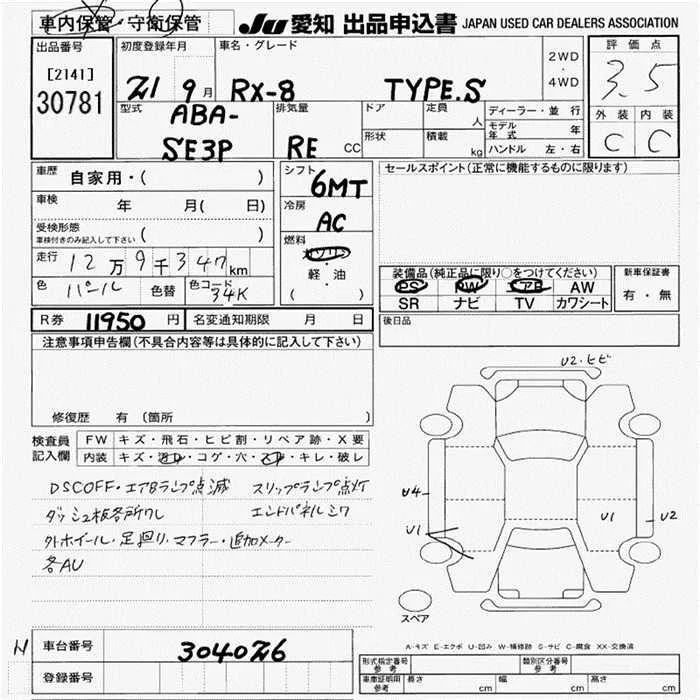 車内保管・守衛保管 JU 愛知 出品申込書 JAPAN USED CAR DEALERS ASSOCIATION
出品番号 初度登録年月 車名・グレード 2WD・4WD 評価点
[2141] 30781 21 9月 RX-8 TYPE.S 3.5
型式 ABA-SE3P 排気量 RE CC ドア 定員 人 ディーラー・並行 外装 内装
形状 積載 kg モデル年式 年 C C
ハンドル 左・右
車歴 自家用・( ) シフト 6MT セールスポイント(正常に機能するものに限ります)
車検 年 月( 日) 冷房 AC
受検形態 車検付きのみ記入して下さい ( ) 燃料 ガソリン
走行 12万9千347km 軽・油 装備品(純正品に限り○をつけてください) 新車保証書
色 パール 色替 色コード 34K ( ) PS PW エアB AW 有・無
SR ナビ TV カワシート
R券 11950円 名変通知期限 月 日 後日品
注意事項申告欄(不具合内容等は具体的に記入して下さい)
修復歴 有 (箇所 )
検査員記入欄 FW キズ・飛石・ヒビ割・リペア跡・X要
内装 キズ・汚レ・コゲ・穴・スレ・キレ・破レ
DSCOFF・エアBランプ点滅 スリップランプ点灯
ダッシュ板各所ワレ エンドパネルシワ
外ホイール・足廻り,マフラー・追加メーター
各AU
U2・ヒビ
U4
U1
U1
U2
スペア
A-キズ E-エクボ U-凹み W-補修跡 S-サビ C-腐食 XX-交換済
N 車台番号 304026
登録番号
形式指定番号 参考 類別区分番号 参考
車庫証明用 参考 長さ cm 幅 cm 高さ cm